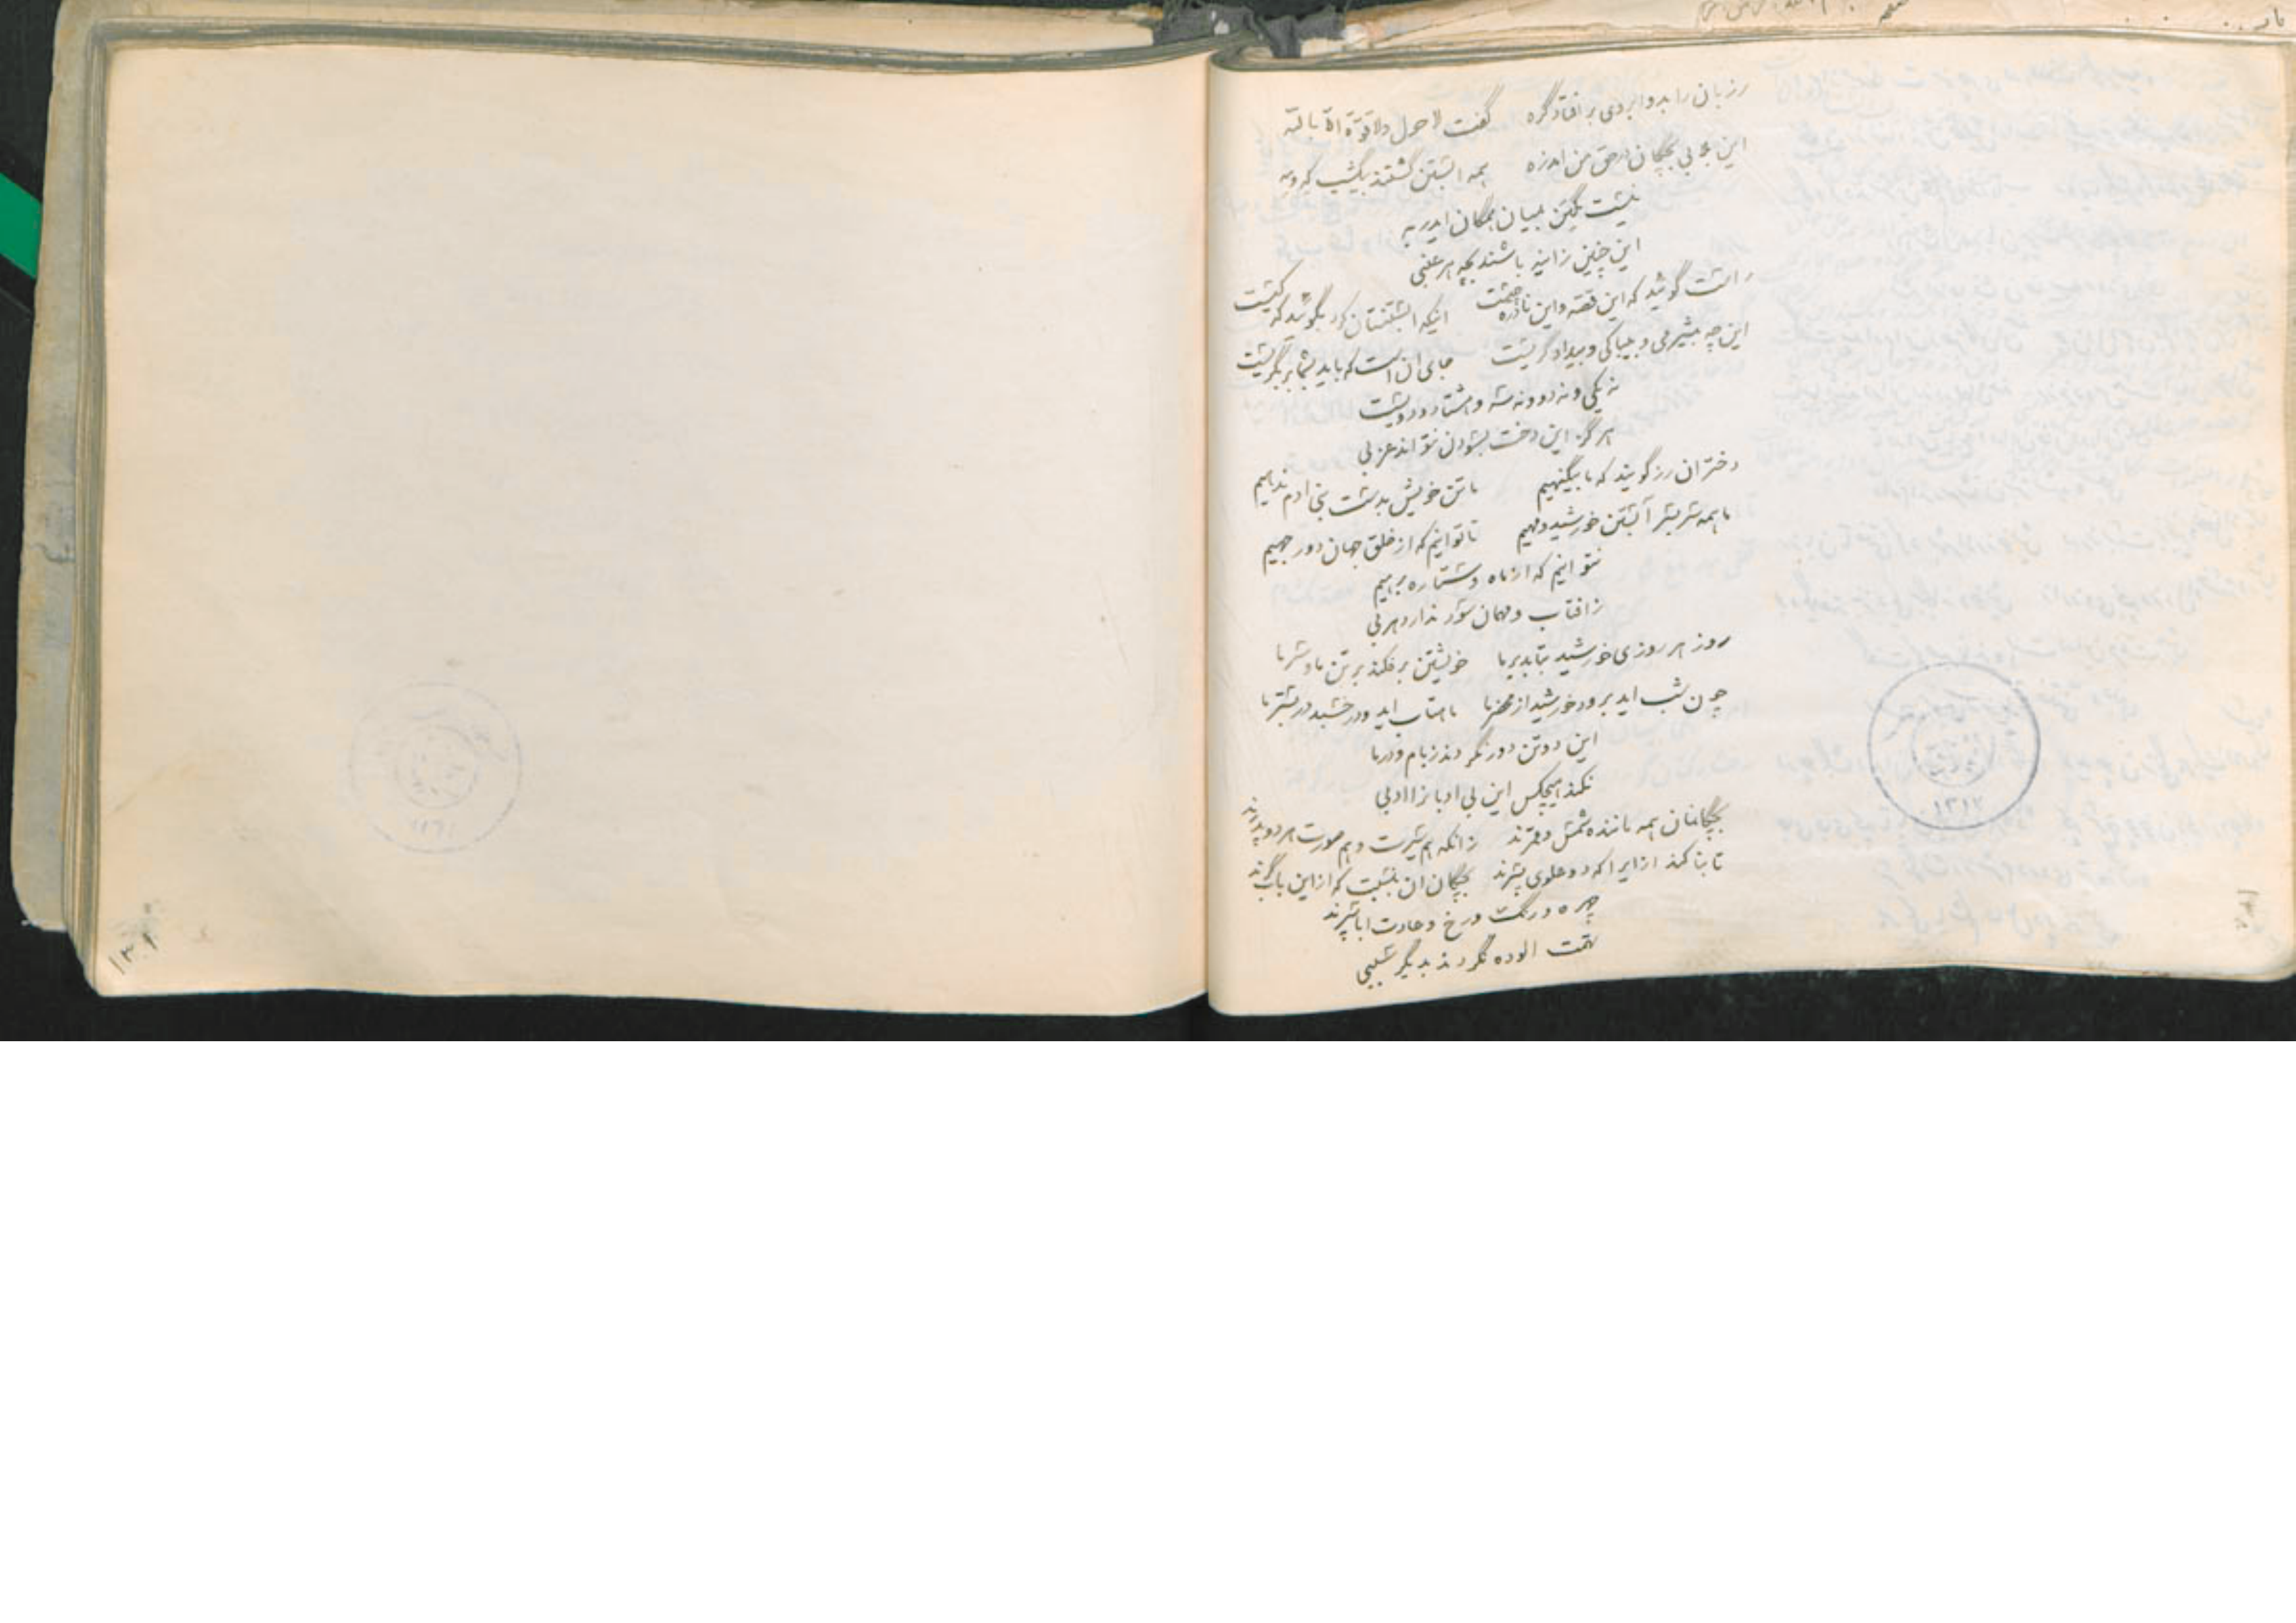 رزبان را بدو ابروی بر افتاد گره گفت لا حول ولا قوة الا بالله
این چه بی بچگان در حق من همه ابستن گشتند بیکشب که ومه
نیست یکتن بمیان همگان ایدر به
این چنین زانیه باشند بچه هر عنبی
راست گوئید که این قصه و این نادره چیست اینکه ابستنتان کرد بگوئید که کیست
این چه بیشرمی و بیباکی و بیدادگریست جای ان است که باید بشما بر بگریست
نه یکی و نه دو و نه سه و هشتاد و دویست
هرگز این دخت بسودن نتواند عزبی
دختران رز گویند که ما بیگنهیم ما تن خویش بدست بنی ادم ندهیم
ما همه سر بسر آبستن خورشید و مهیم ما توانیم که از خلق جهان دور جهیم
نتوانیم که از ماه و ستاره برهیم
ز افتاب و مهمان سود ندارد هربی
روز هر روزی خورشید بتابد بر ما خویشتن بر فکند بر تن ما و سر ما
چون شب اید برود خورشید از محضر ما ماهتاب اید و در خسبد در بستر ما
این دو تن دور نگردند ز بام و در ما
نکند هیچکس این بی ادبانرا ادبی
بچگانمان همه ماننده شمس و قمرند زانکه هم سیرت و هم صورت هر دو پدرند
تابناکند ازیرا که دو علوی گهرند بچگان ان بنسبت که از این باب گرند
چهره و رنگ و رخ و عادت ابا سپرند
تهمت الوده نگردند بدیگر نسبی
۱۳۱۷